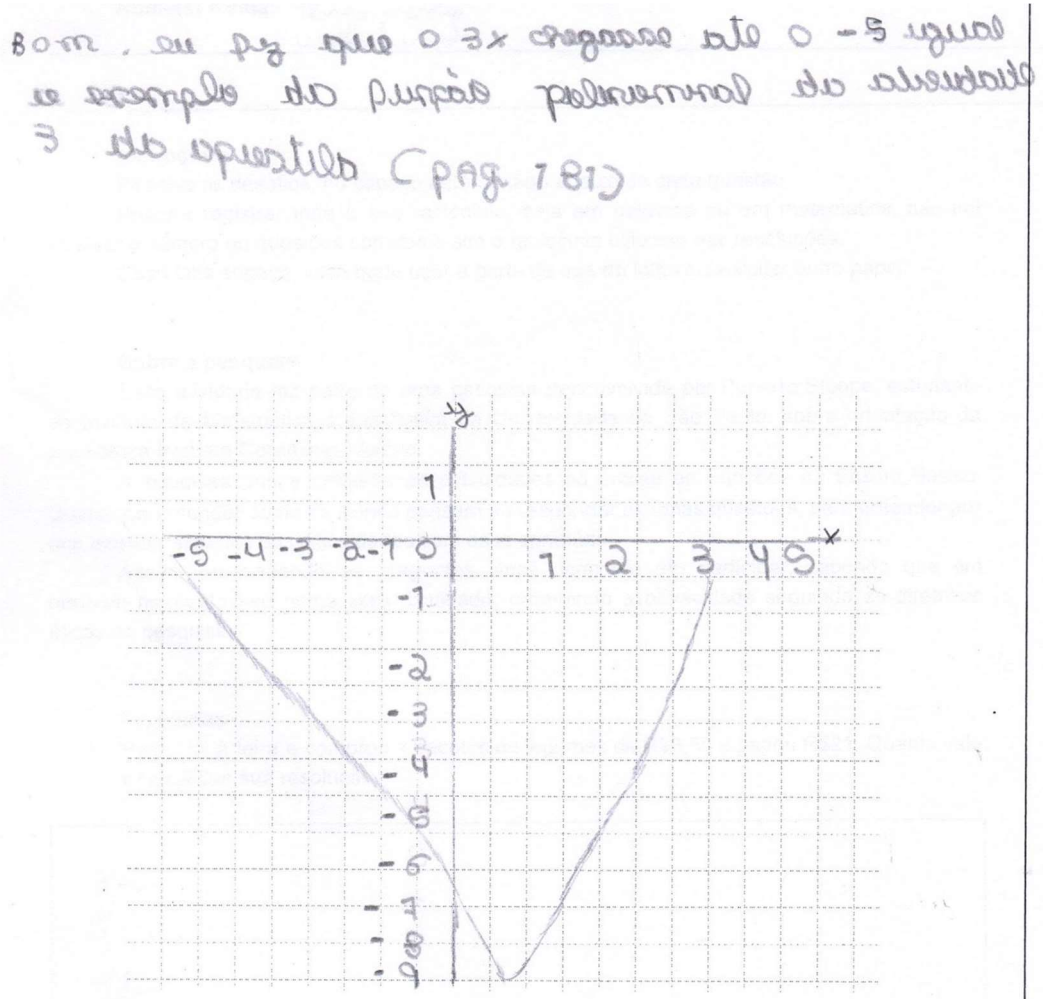 Bom, eu fiz que o 3x chegasse até o -5 igual
o exemplo da função polinomial da atividade
3 da apostila (pag. 181)
y
1
-5 -4 -3 -2 -1 0 1 2 3 4 5 x
-1
-2
-3
-4
-5
-6
-7
-8
-9